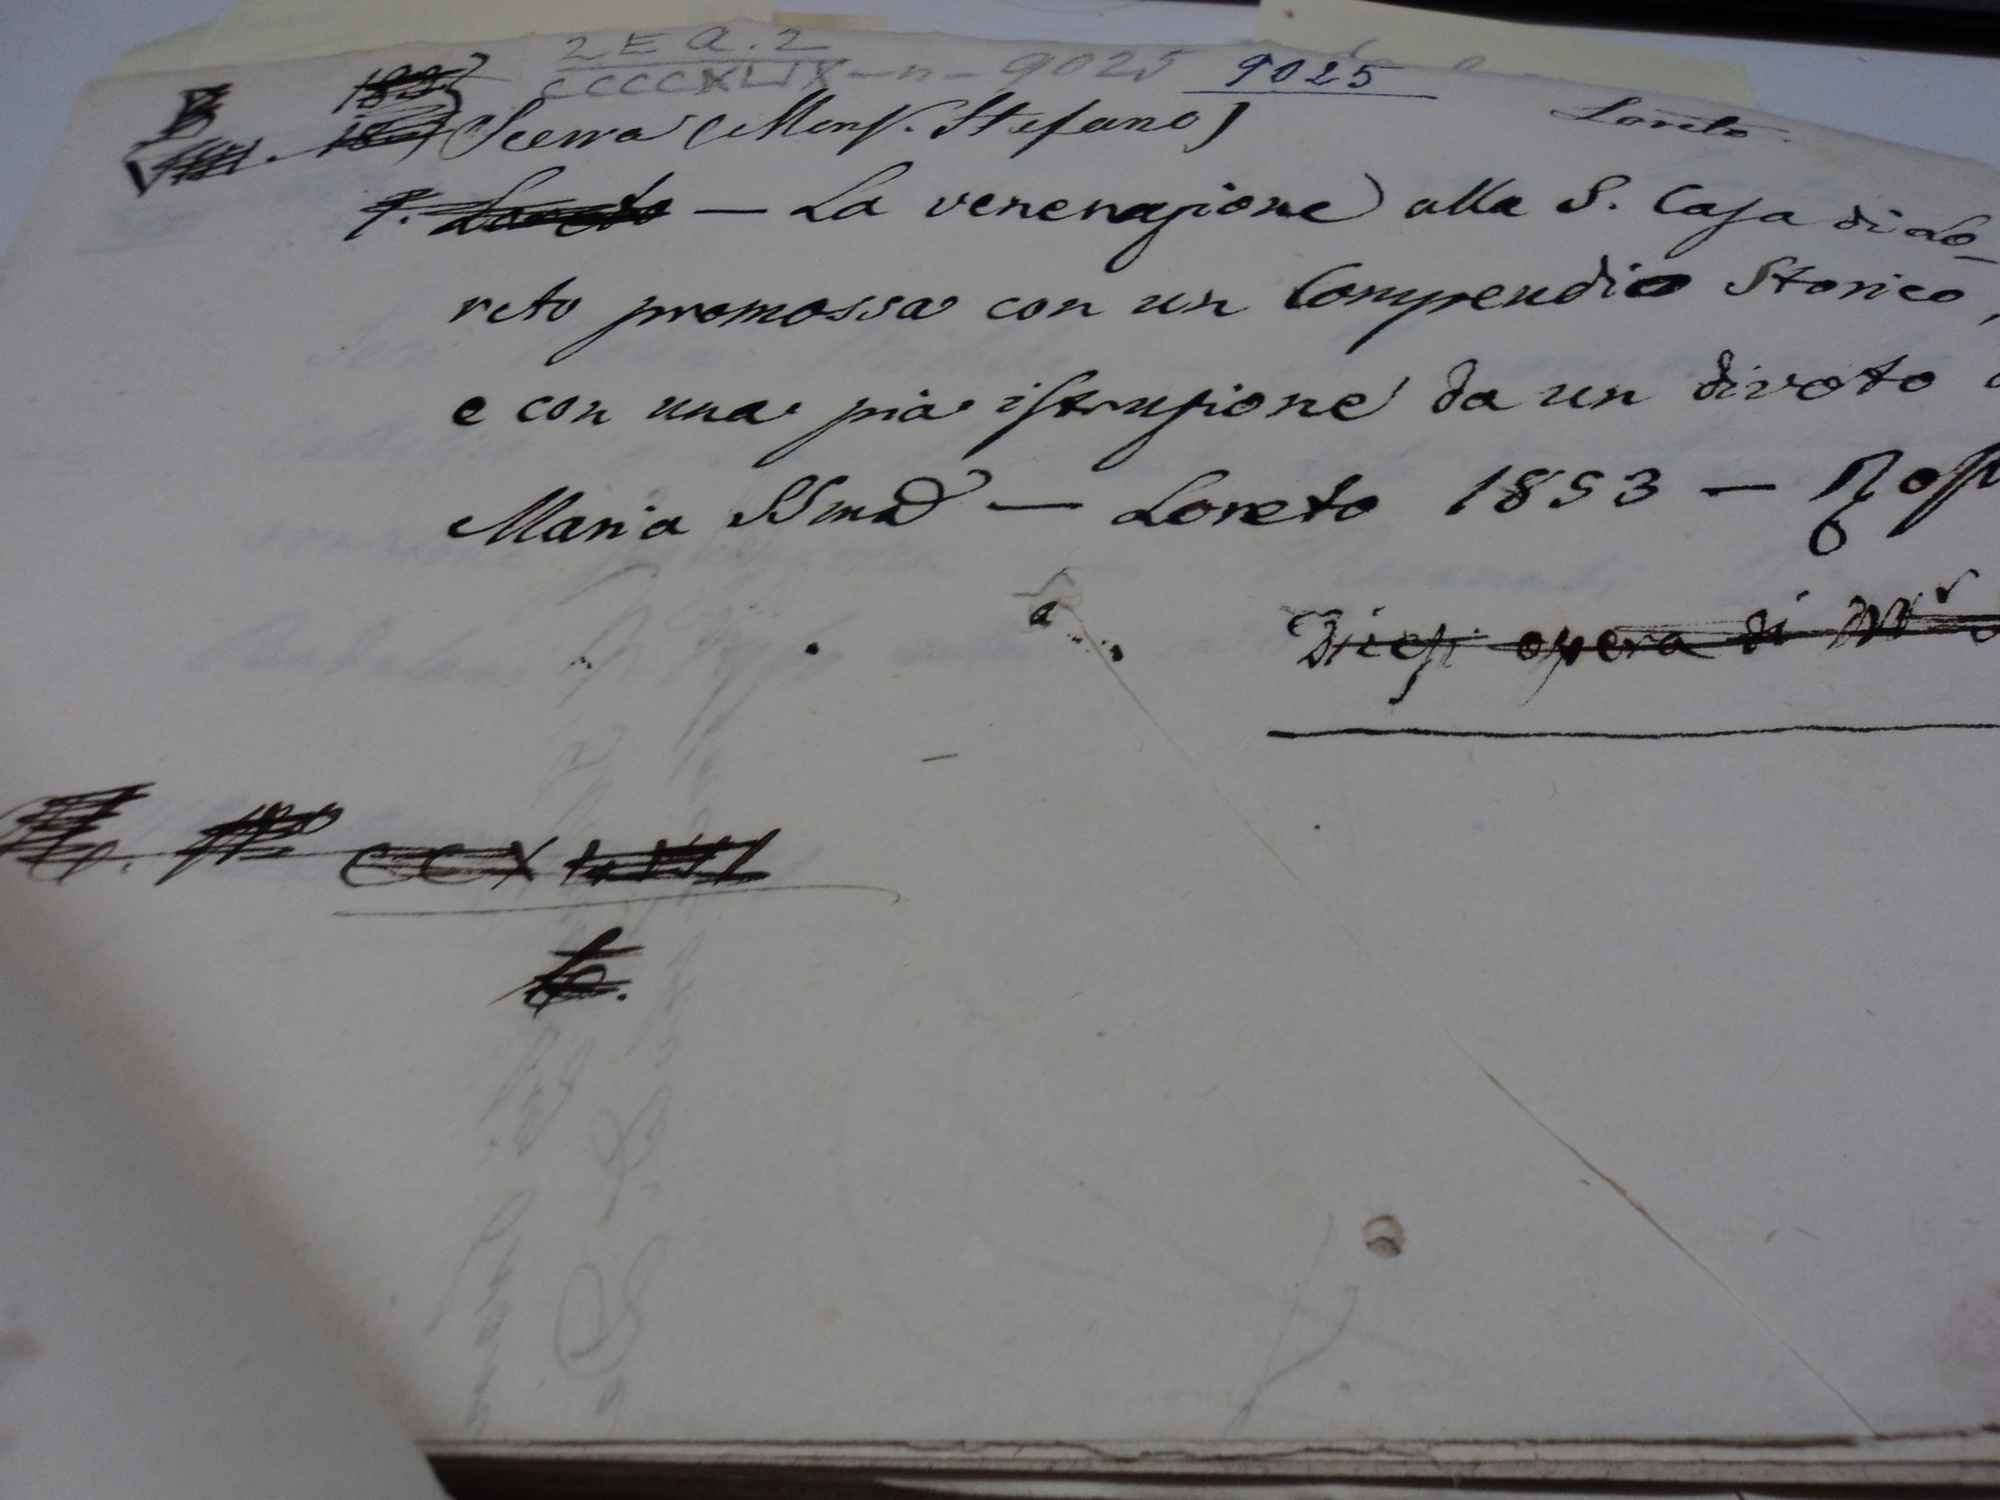 2 E Q. 2
CCCCXLIX - n - 9025 9025
Loreto
Scerra (Monſ. Stefano)
La venerazione alla S. Caſa di Lo-
reto promossa con un Compendio Storico,
e con una pia iſtruzione da un divoto
Maria SSma - Loreto 1853 - Roſ
Diceſi opera di Mr
CCXLVII